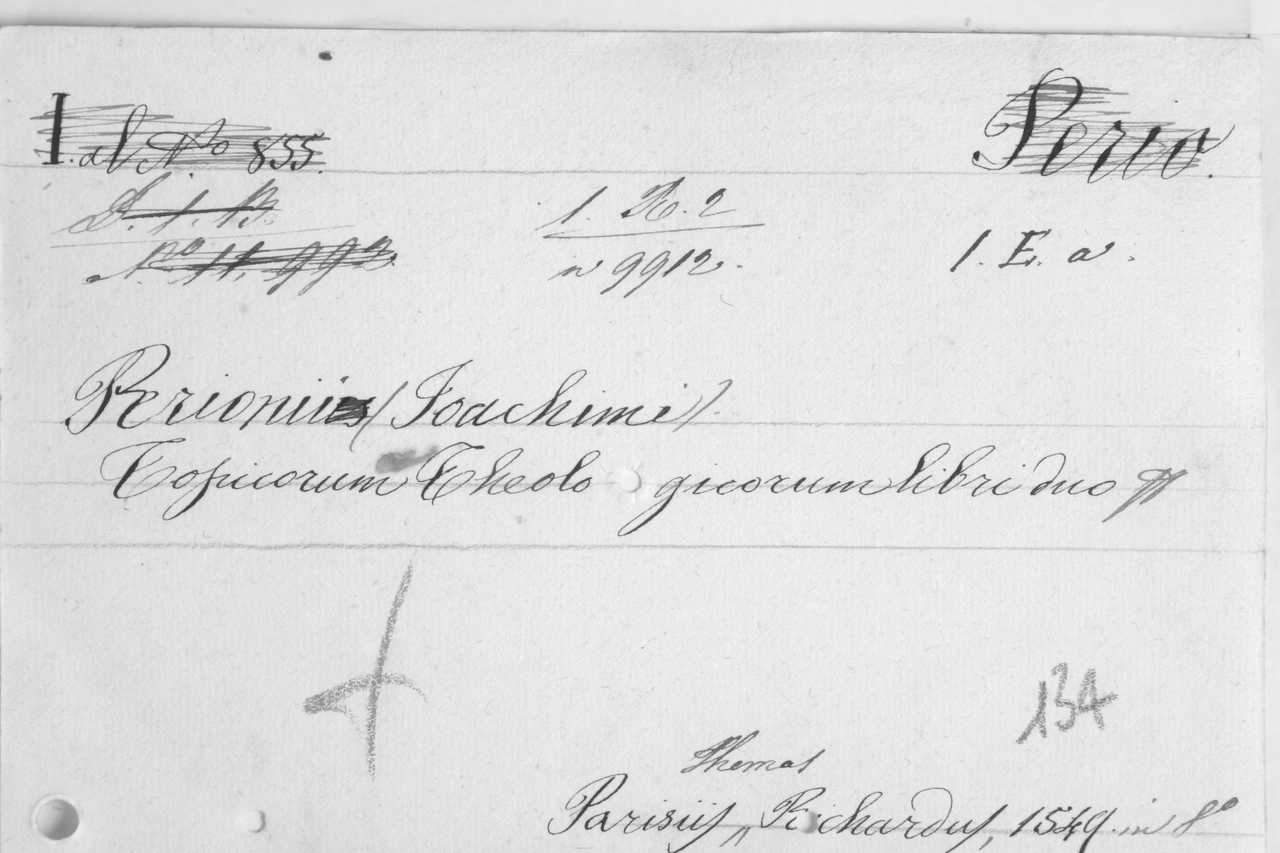 I. al. No 855. Perio.
D. 1. B. 1. R. 2 1. E. a.
No 11.992. n 9912.
Perionii (Joachimi).
Topicorum Theologicorum libri duo
134
Thomas
Parisiis, Richardus, 1549. in 8o